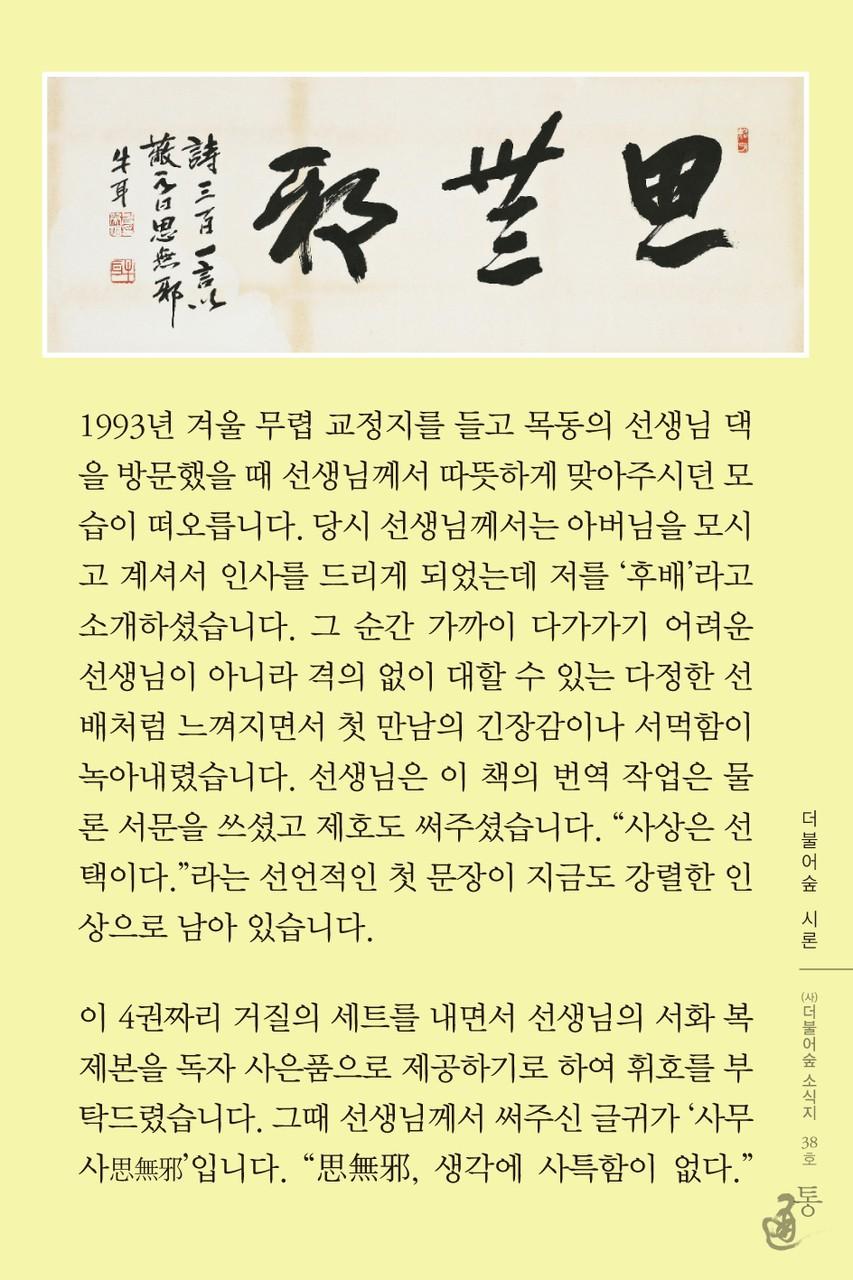 思無邪
詩三百一言以
蔽之曰思無邪
牛耳
1993년 겨울 무렵 교정지를 들고 목동의 선생님 댁
을 방문했을 때 선생님께서 따뜻하게 맞아주시던 모
습이 떠오릅니다. 당시 선생님께서는 아버님을 모시
고 계셔서 인사를 드리게 되었는데 저를 ‘후배’라고
소개하셨습니다. 그 순간 가까이 다가가기 어려운
선생님이 아니라 격의 없이 대할 수 있는 다정한 선
배처럼 느껴지면서 첫 만남의 긴장감이나 서먹함이
녹아내렸습니다. 선생님은 이 책의 번역 작업은 물
론 서문을 쓰셨고 제호도 써주셨습니다. “사상은 선
택이다.”라는 선언적인 첫 문장이 지금도 강렬한 인
상으로 남아 있습니다.
이 4권짜리 거질의 세트를 내면서 선생님의 서화 복
제본을 독자 사은품으로 제공하기로 하여 휘호를 부
탁드렸습니다. 그때 선생님께서 써주신 글귀가 ‘사무
사思無邪’입니다. “思無邪, 생각에 사특함이 없다.”
더불어숲 시론
(사)더불어숲 소식지 38호
통
通